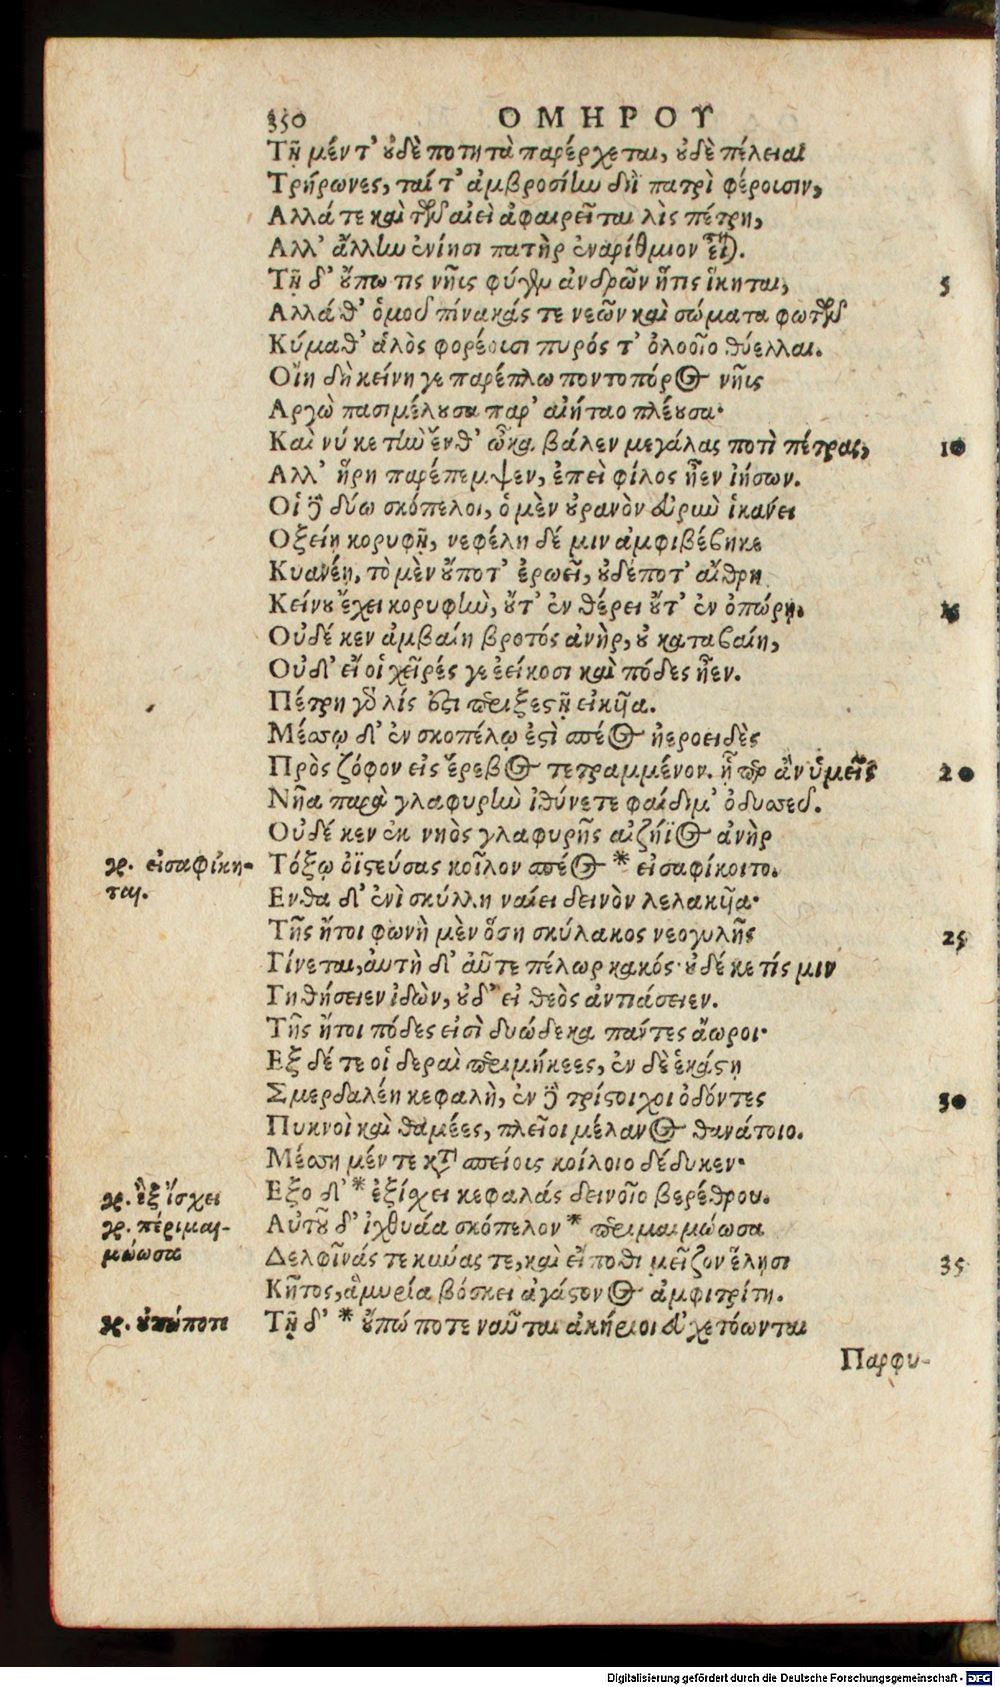 350 ΟΜΗΡΟΥ
Τῇ μέν τ' οὐδὲ ποτητὰ παρέρχεται, οὐδὲ πέλειαι
Τρήρωνες, ταί τ' ἀμβροσίην διῒ πατρὶ φέρουσιν,
Αλλά τε καὶ τῶν αἰεὶ ἀφαιρεῖται λὶς πέτρη,
Αλλ' ἄλλην ἐνίησι πατὴρ ἐναρίθμιον εἶναι.
Τῇ δ' οὔπω τις νηῦς φύγεν ἀνδρῶν ἥτις ἵκηται, 5
Αλλά θ' ὁμοῦ πίνακάς τε νεῶν καὶ σώματα φωτῶν
Κύμαθ' ἁλὸς φορέουσι πυρός τ' ὀλοοῖο θύελλαι.
Οἴη δὴ κείνη γε παρέπλω ποντοπόρος νηῦς
Αργὼ πασιμέλουσα παρ' αἰήταο πλέουσα·
Καὶ νύ κε τὴν ἔνθ' ὦκα βάλεν μεγάλας ποτὶ πέτρας, 10
Αλλ' ἥρη παρέπεμψεν, ἐπεὶ φίλος ἦεν ἰήσων.
Οἱ δὲ δύω σκόπελοι, ὁ μὲν οὐρανὸν εὐρὺν ἱκάνει
Οξείῃ κορυφῇ, νεφέλη δέ μιν ἀμφιβέβηκε
Κυανέη, τὸ μὲν οὔποτ' ἐρωεῖ, οὐδέποτ' αἴθρη
Κείνου ἔχει κορυφὴν, οὔτ' ἐν θέρει οὔτ' ἐν ὀπώρῃ. 15
Οὐδέ κεν ἀμβαίη βροτός ἀνὴρ, οὐ καταβαίη,
Οὐδ' εἴ οἱ χεῖρές γε ἐείκοσι καὶ πόδες ἦεν.
Πέτρη γὰρ λίς ἐστι περιξεστῇ εἰκυῖα.
Μέσσῳ δ' ἐν σκοπέλῳ ἐστὶ σπέος ἠεροειδὲς
Πρὸς ζόφον εἰς ἔρεβος τετραμμένον. ᾗ περ ἂν ὑμεῖς 20
Νῆα παρὰ γλαφυρὴν ἰθύνετε φαίδιμ' ὀδυσσεῦ.
Οὐδέ κεν ἐκ νηὸς γλαφυρῆς αἰζήϊος ἀνὴρ
γρ. εἰσαφίκη- Τόξῳ ὀϊστεύσας κοῖλον σπέος * εἰσαφίκοιτο.
ται. Ενθα δ' ἐνὶ σκύλλη ναίει δεινὸν λελακυῖα·
Τῆς ἤτοι φωνὴ μὲν ὅση σκύλακος νεογυλῆς 25
Γίνεται, αὐτὴ δ' αὖτε πέλωρ κακός· οὐδέ κε τίς μιν
Γηθήσειεν ἰδὼν, οὐδ' εἰ θεὸς ἀντιάσειεν.
Τῆς ἤτοι πόδες εἰσὶ δυώδεκα πάντες ἄωροι·
Εξ δέ τε οἱ δεραὶ περιμήκεες, ἐν δὲ ἑκάστῃ
Σμερδαλέη κεφαλὴ, ἐν δὲ τρίστοιχοι ὀδόντες 30
Πυκνοὶ καὶ θαμέες, πλεῖοι μέλανος θανάτοιο.
Μέσση μέν τε κατὰ σπείους κοίλοιο δέδυκεν·
γρ. ἒξ ἴσχει Εξο δ' * ἐξίσχει κεφαλάς δεινοῖο βερέθρου.
γρ. πέριμαι- Αὐτοῦ δ' ἰχθυάα σκόπελον * περιμαιμώωσα
μώωσα Δελφῖνάς τε κυύας τε, καὶ εἴ ποθι μεῖζον ἕλησι 35
Κῆτος, ἃ μυρία βόσκει ἀγάστονος ἀμφιτρίτη.
γρ. οὐπώποτε Τῇ δ' * οὔπώ ποτε ναῦται ἀκήριοι εὐχετόωνται
Παρφυ-
Digitalisierung gefördert durch die Deutsche Forschungsgemeinschaft - DFG